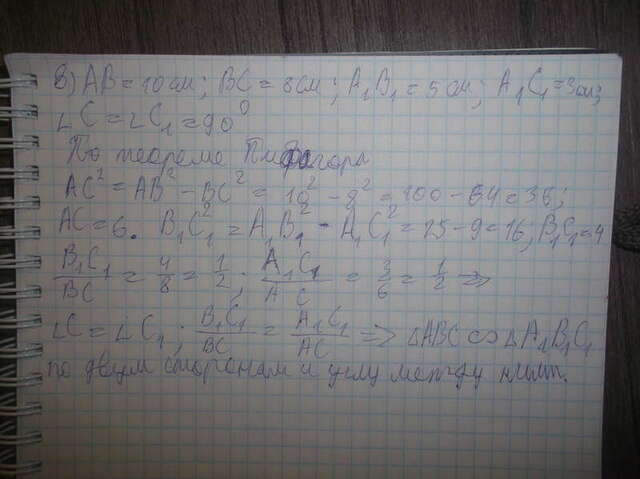 в) AB = 10 см; BC = 8 см; A₁B₁ = 5 см; A₁C₁ = 3 см;
∠C = ∠C₁ = 90°
По теореме Пифагора
AC² = AB² − BC² = 10² − 8² = 100 − 64 = 36;
AC = 6. B₁C₁² = A₁B₁² − A₁C₁² = 25 − 9 = 16; B₁C₁ = 4
B₁C₁/BC = 4/8 = 1/2; A₁C₁/AC = 3/6 = 1/2 =>
∠C = ∠C₁; B₁C₁/BC = A₁C₁/AC => △ABC ∽ △A₁B₁C₁
по двум сторонам и углу между ними.